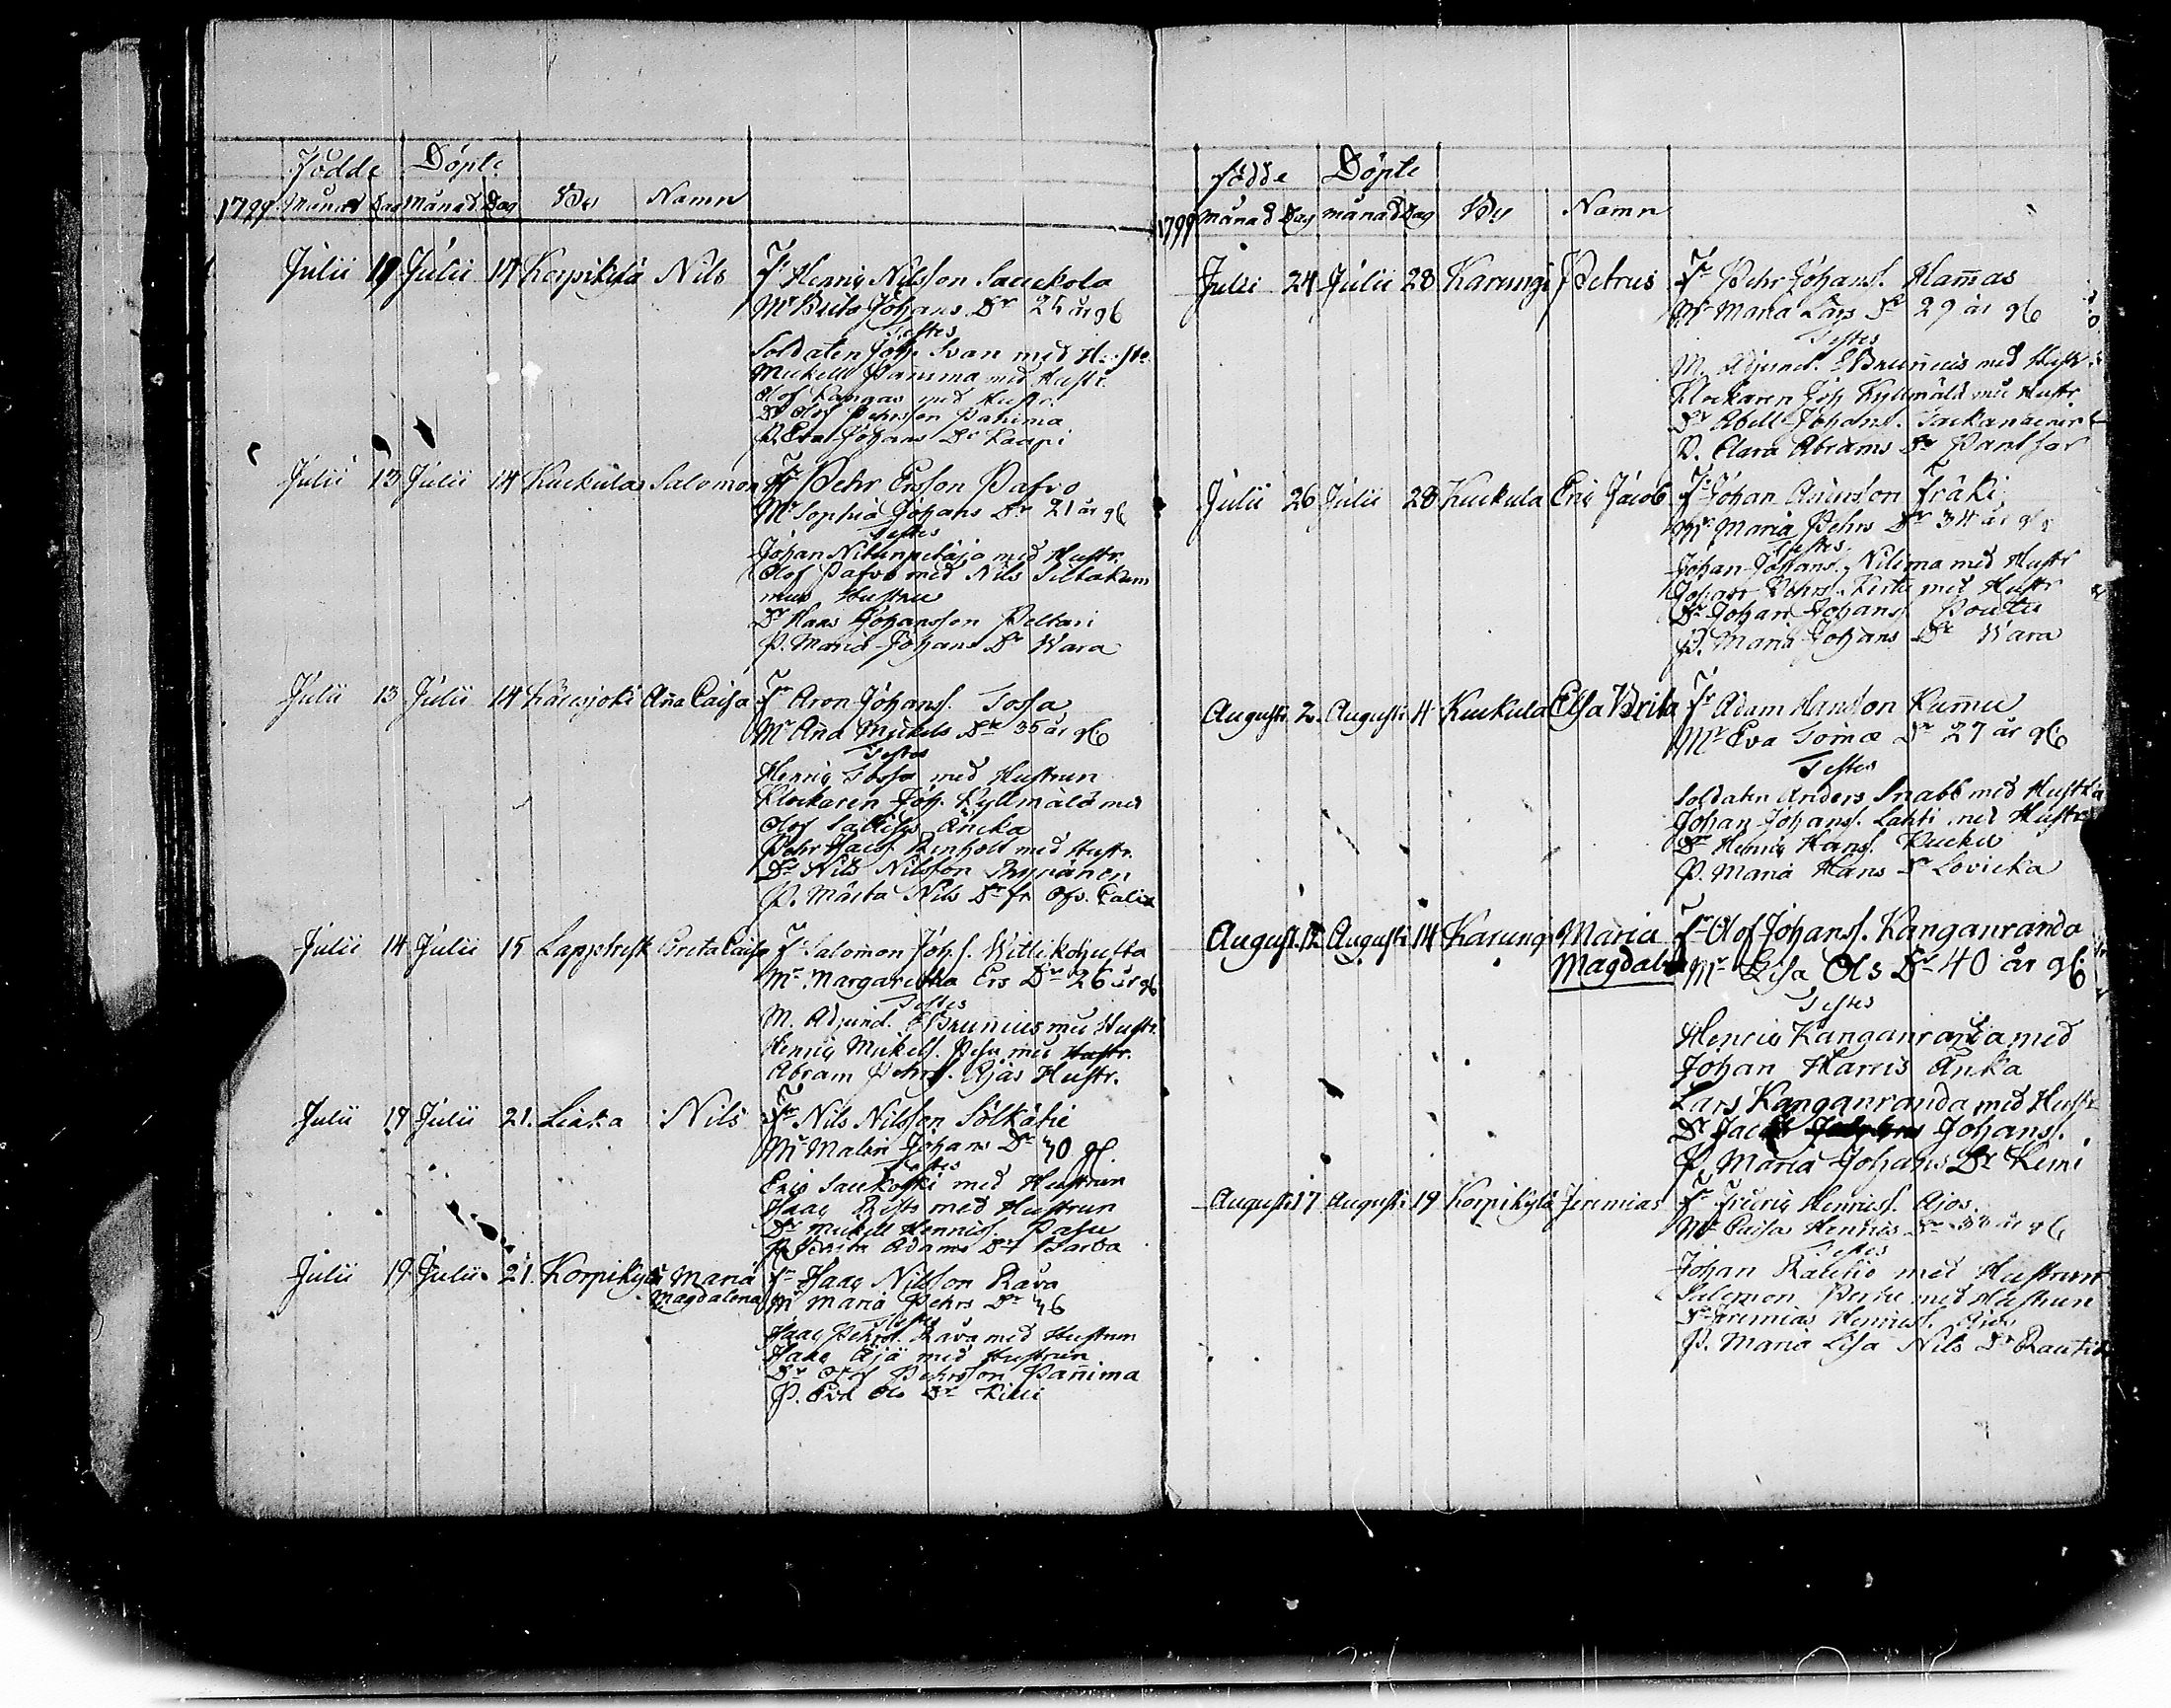 Födde Döpte
1799 Månad Dag Månad Dag By Namn
Julii 11 Julii 14 Korpikylä Nils Fr Henric Nilsson Sauckola
Mr Brita Johans Dr 25 år g6
Testes
Soldaten Joh. Svan med Hustr.
Mickell Pannima med Hustr.
Olof Kangas med Hustr.
Dr Olof Pehrsson Pannima
P. Eva Johans Dr Kaapi
Julii 13 Julii 14 Kuckula Salomon Fr Pehr Ersson Pafvo
Mr Sophia Johans Dr 21 år g6
Testes
Johan Nitunpeltajo med Hustr.
Olof Pafvo med Nils Sillakum
mus Hustru
Dr Hans Johansson Peltari
P. Maria Johans Dr Wara
Julii 13 Julii 14 Karsjoki Anna Caisa Fr Aron Johanss. Tossa
Mr Anna Mickels Dr 35 år g6
Testes
Henric Tossa med Hustrun
Klockaren Joh. Kyllmälä med
Olof Enka
Pehr Jacobss. Renholt med Hustr.
Dr Nils Nilsson Thynänen
P. Märta Nils Dr fr. Öfv. Calix
Julii 14 Julii 15 Lappträsk Brita Caisa Fr Salomon Johss. Wittikohulta
Mr Margaretha Ers Dr 26 år g6
Testes
M. Adjunct. Brunnius med Hustr.
Henric Mickelss. Pesu med Hustr.
Abram Pehrss. Ajas Hustr.
Julii 17 Julii 21. Liaka Nils Fr Nils Nilsson Sölkätie
Mr Malin Johans Dr 40 g6
Testes
Eric Sauckoski med Hustrun
Isaac Rists med Hustrun
Dr Mickell Henricss. Pasu
P. Brita Adams Dr Barba
Julii 19 Julii 21. Korpikylä Maria Fr Isaac Nilsson Rava
Magdalena Mr Maria Pehrs Dr 46
Testes
Isaac Pehrss. Rava med Hustrun
Isaac Äjä med Hustrun
Dr Olof Pehrsson Pannima
P. Eva Ols Dr Killi
födde Döpte
1799 Månad Dag månad Dag By Namn
Julii 24 Julii 28 Karungi Petrus Fr Pehr Johanss. Hannas
Mr Maria Lars Dr 29 år g6
Testes
M. Adjunct. Brunnius med Hustr.
Klockaren Joh Kyllmälä med Hustr.
Dr Abell Johanss.
P. Clara Abrams Dr Pantsar
Julii 26 Julii 28 Kuckula Eric Jacob Fr Johan Andersson Fräki
Mr Maria Pehrs Dr 34 år g6
Testes
Johan Johanss. Nilima med Hustr
Johan Pehrs. Kirta med Hustr
Dr Johan Johanss. Poutu
P. Maria Johans Dr Wara
Augusti 2. Augusti 4 Kuckula Elsa Brita Fr Adam Hansson Kummu
Mr Eva Tomæ Dr 27 år g6
Testes
Soldaten Anders Snabb med Hustru
Johan Johanss. Lahti med Hustr
Dr Henric Hanss. Kucku
P. Maria Hans Dr Lovicka
August. 12. Augusti 14 Karungi Maria Fr Olof Johanss. Kanganranda
Magdalena Mr Lisa Ols Dr 40 år g6
Testes
Henric Kanganranda med
Johan Harris Enka
Lars Kanganranda med Hustr
Dr Jacob Johanss.
P. Maria Johans Dr Kemi
Augusti 17 Augusti 19 Korpikylä Jeremias Fr Henricss. Ajos.
Mr Caisa Henrics Dr år g6
Testes
Johan Rautio med Hustrun
Salomon med Hustrun
Dr Jeremias Henricss. Ajos
P. Maria Lisa Nils Dr Rautio